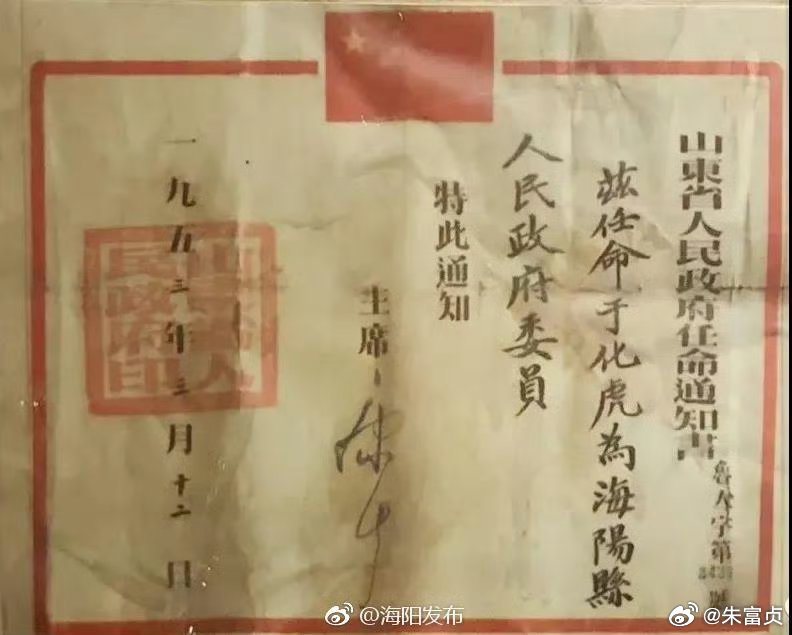 山東省人民政府任命通知書
魯人字第
號
茲任命于化虎為海陽縣
人民政府委員
特此通知
主席
一九五三年三月十二日
山東省人
民政府印
@海阳发布
@朱富贞